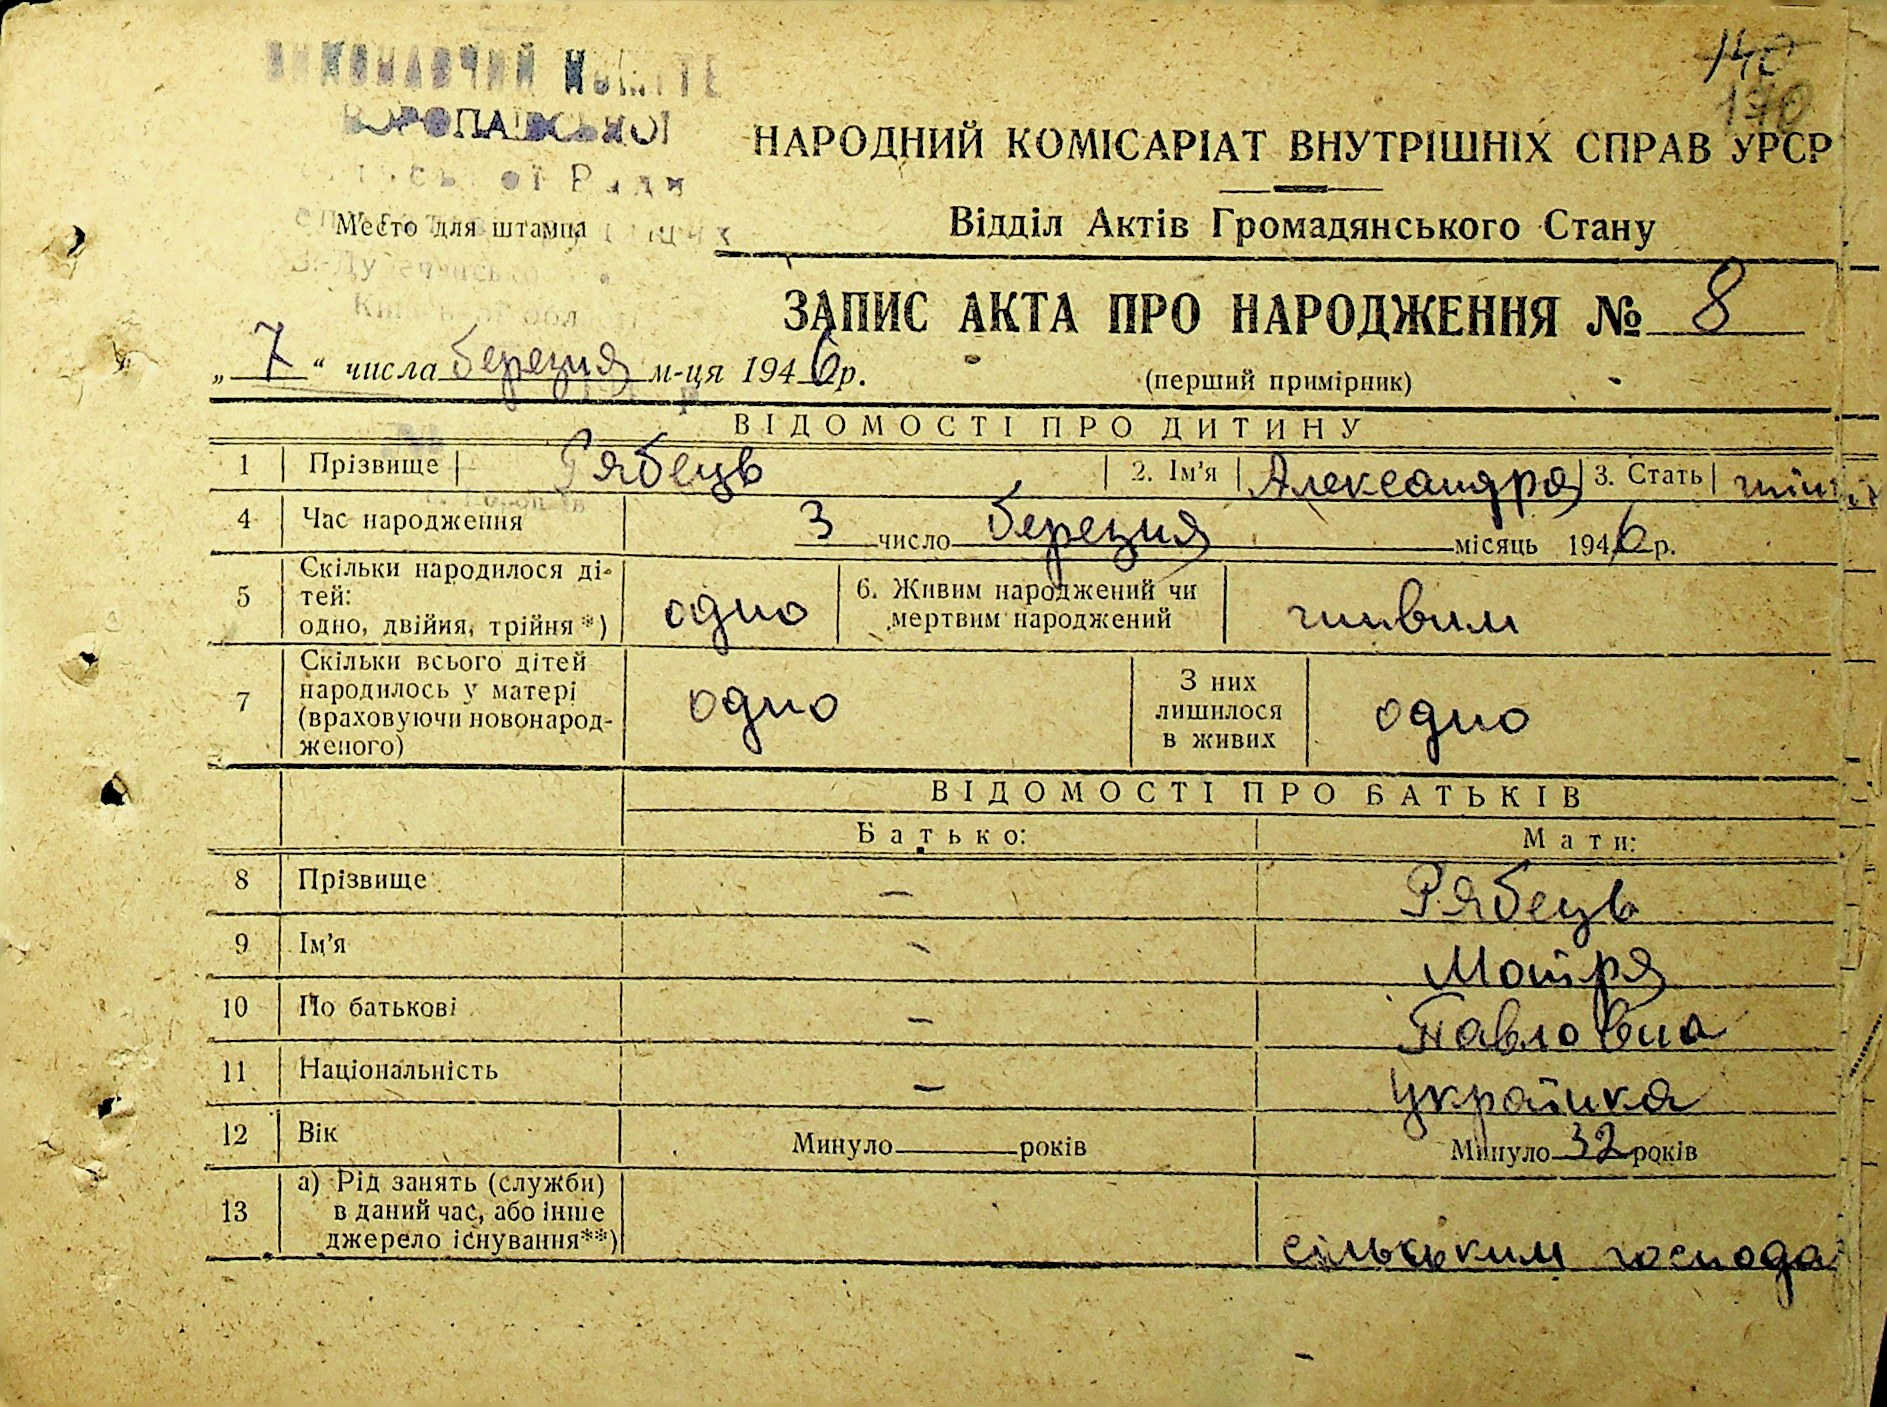 140
170
ВИКОНАВЧИЙ КОМІТЕ
ВОРОПАЇВСЬКОЇ
Ради
Место для штампа
НАРОДНИЙ КОМІСАРІАТ ВНУТРІШНІХ СПРАВ УРСР
Відділ Актів Громадянського Стану
ЗАПИС АКТА ПРО НАРОДЖЕННЯ № 8
„ 7 “ числа березня м-ця 1946 р.
(перший примірник)
ВІДОМОСТІ ПРО ДИТИНУ
1 Прізвище Рябець 2. Ім’я Александра 3. Стать
4 Час народження 3 число березня місяць 1946 р.
5 Скільки народилося ді-
тей:
одно, двійня, трійня*) одно 6. Живим народжений чи
мертвим народжений живим
7 Скільки всього дітей
народилось у матері
(враховуючи новонарод-
женого) одно З них
лишилося
в живих одно
ВІДОМОСТІ ПРО БАТЬКІВ
Батько: Мати:
8 Прізвище — Рябець
9 Ім’я — Мотря
10 По батькові — Павловна
11 Національність — українка
12 Вік Минуло років Минуло 32 років
13 а) Рід занять (служби)
в даний час, або інше
джерело існування**) сільським господа